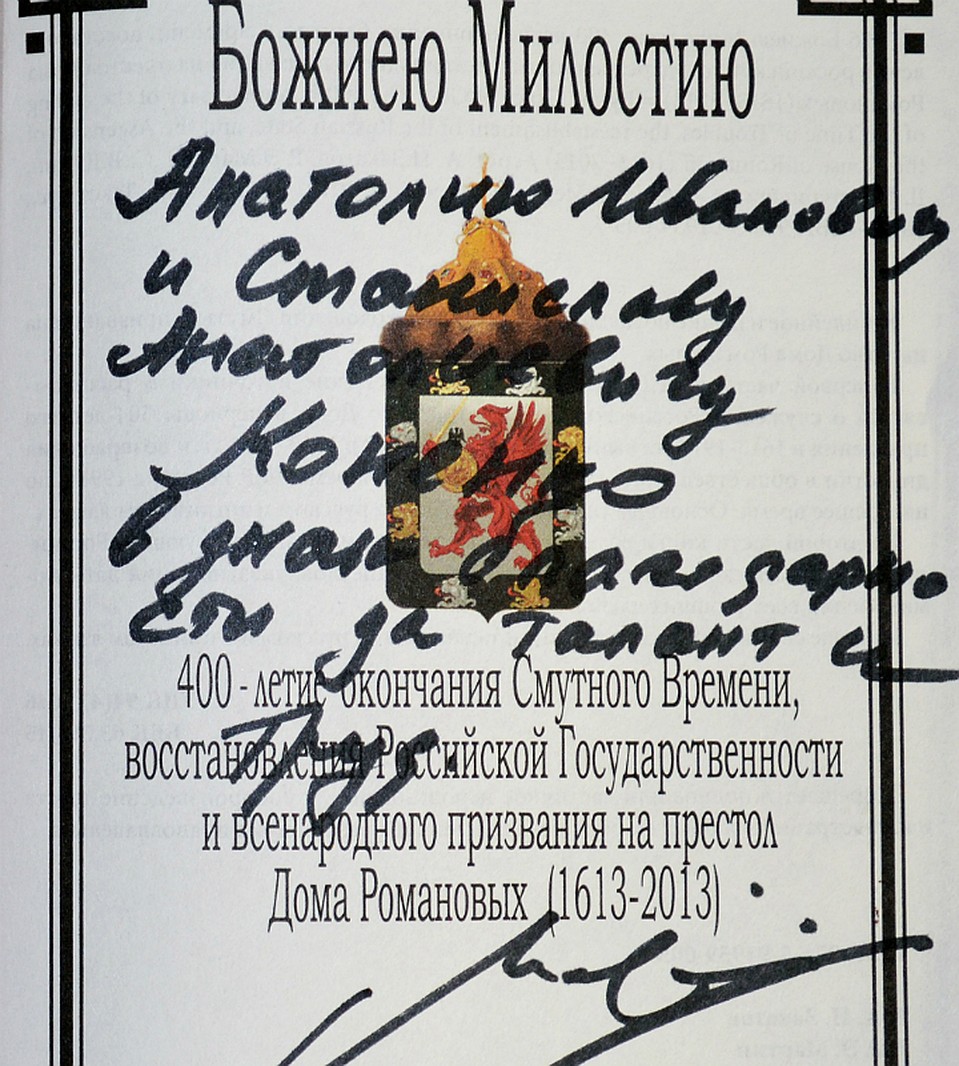 Божиею Милостию
Анатолию Ивановичу
и Станиславу
Анатольевичу
в знак благодарно
сти за талант и
400-летие окончания Смутного Времени,
труд.
восстановления Российской Государственности
и всенародного призвания на престол
Дома Романовых (1613-2013)